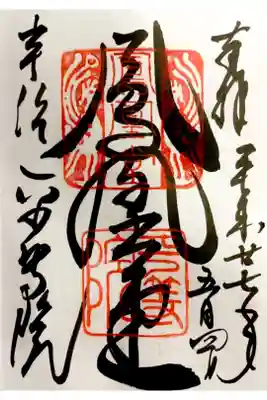 奉拝
平成廿七年
五月四日
鳳凰堂
宇治平等院